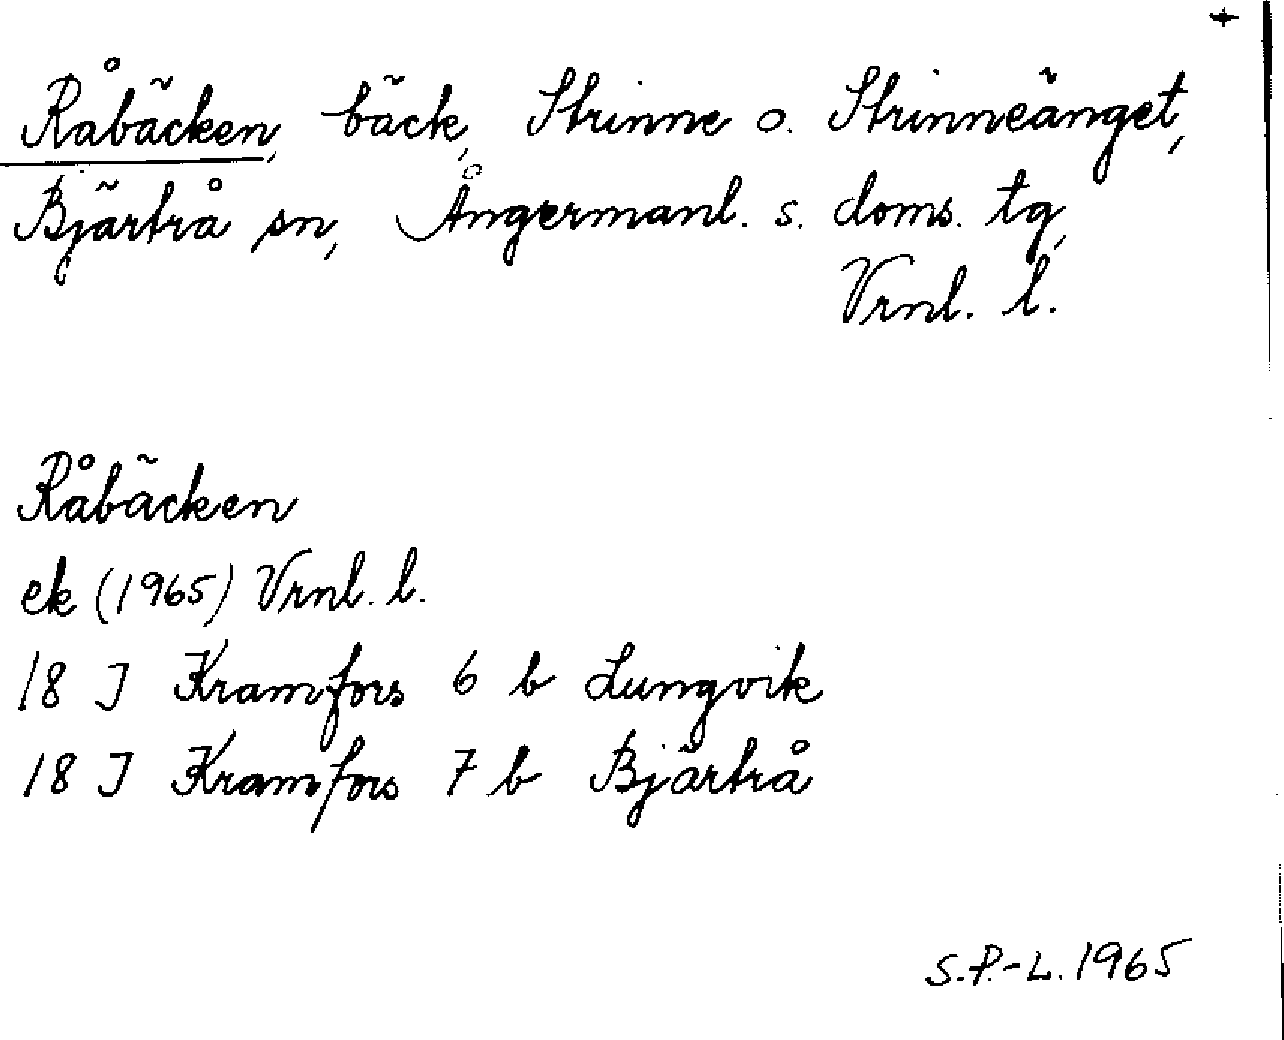 +
Råbäcken, bäck, Strinne o. Strinneänget,
Bjärtrå sn, Ångermanl. s. doms. tg,
Vrnl. l.
Råbäcken
ek (1965) Vrnl. l.
18 J Kramfors 6 b Lungvik
18 J Kramfors 7 b Bjärtrå
S.P.-L. 1965